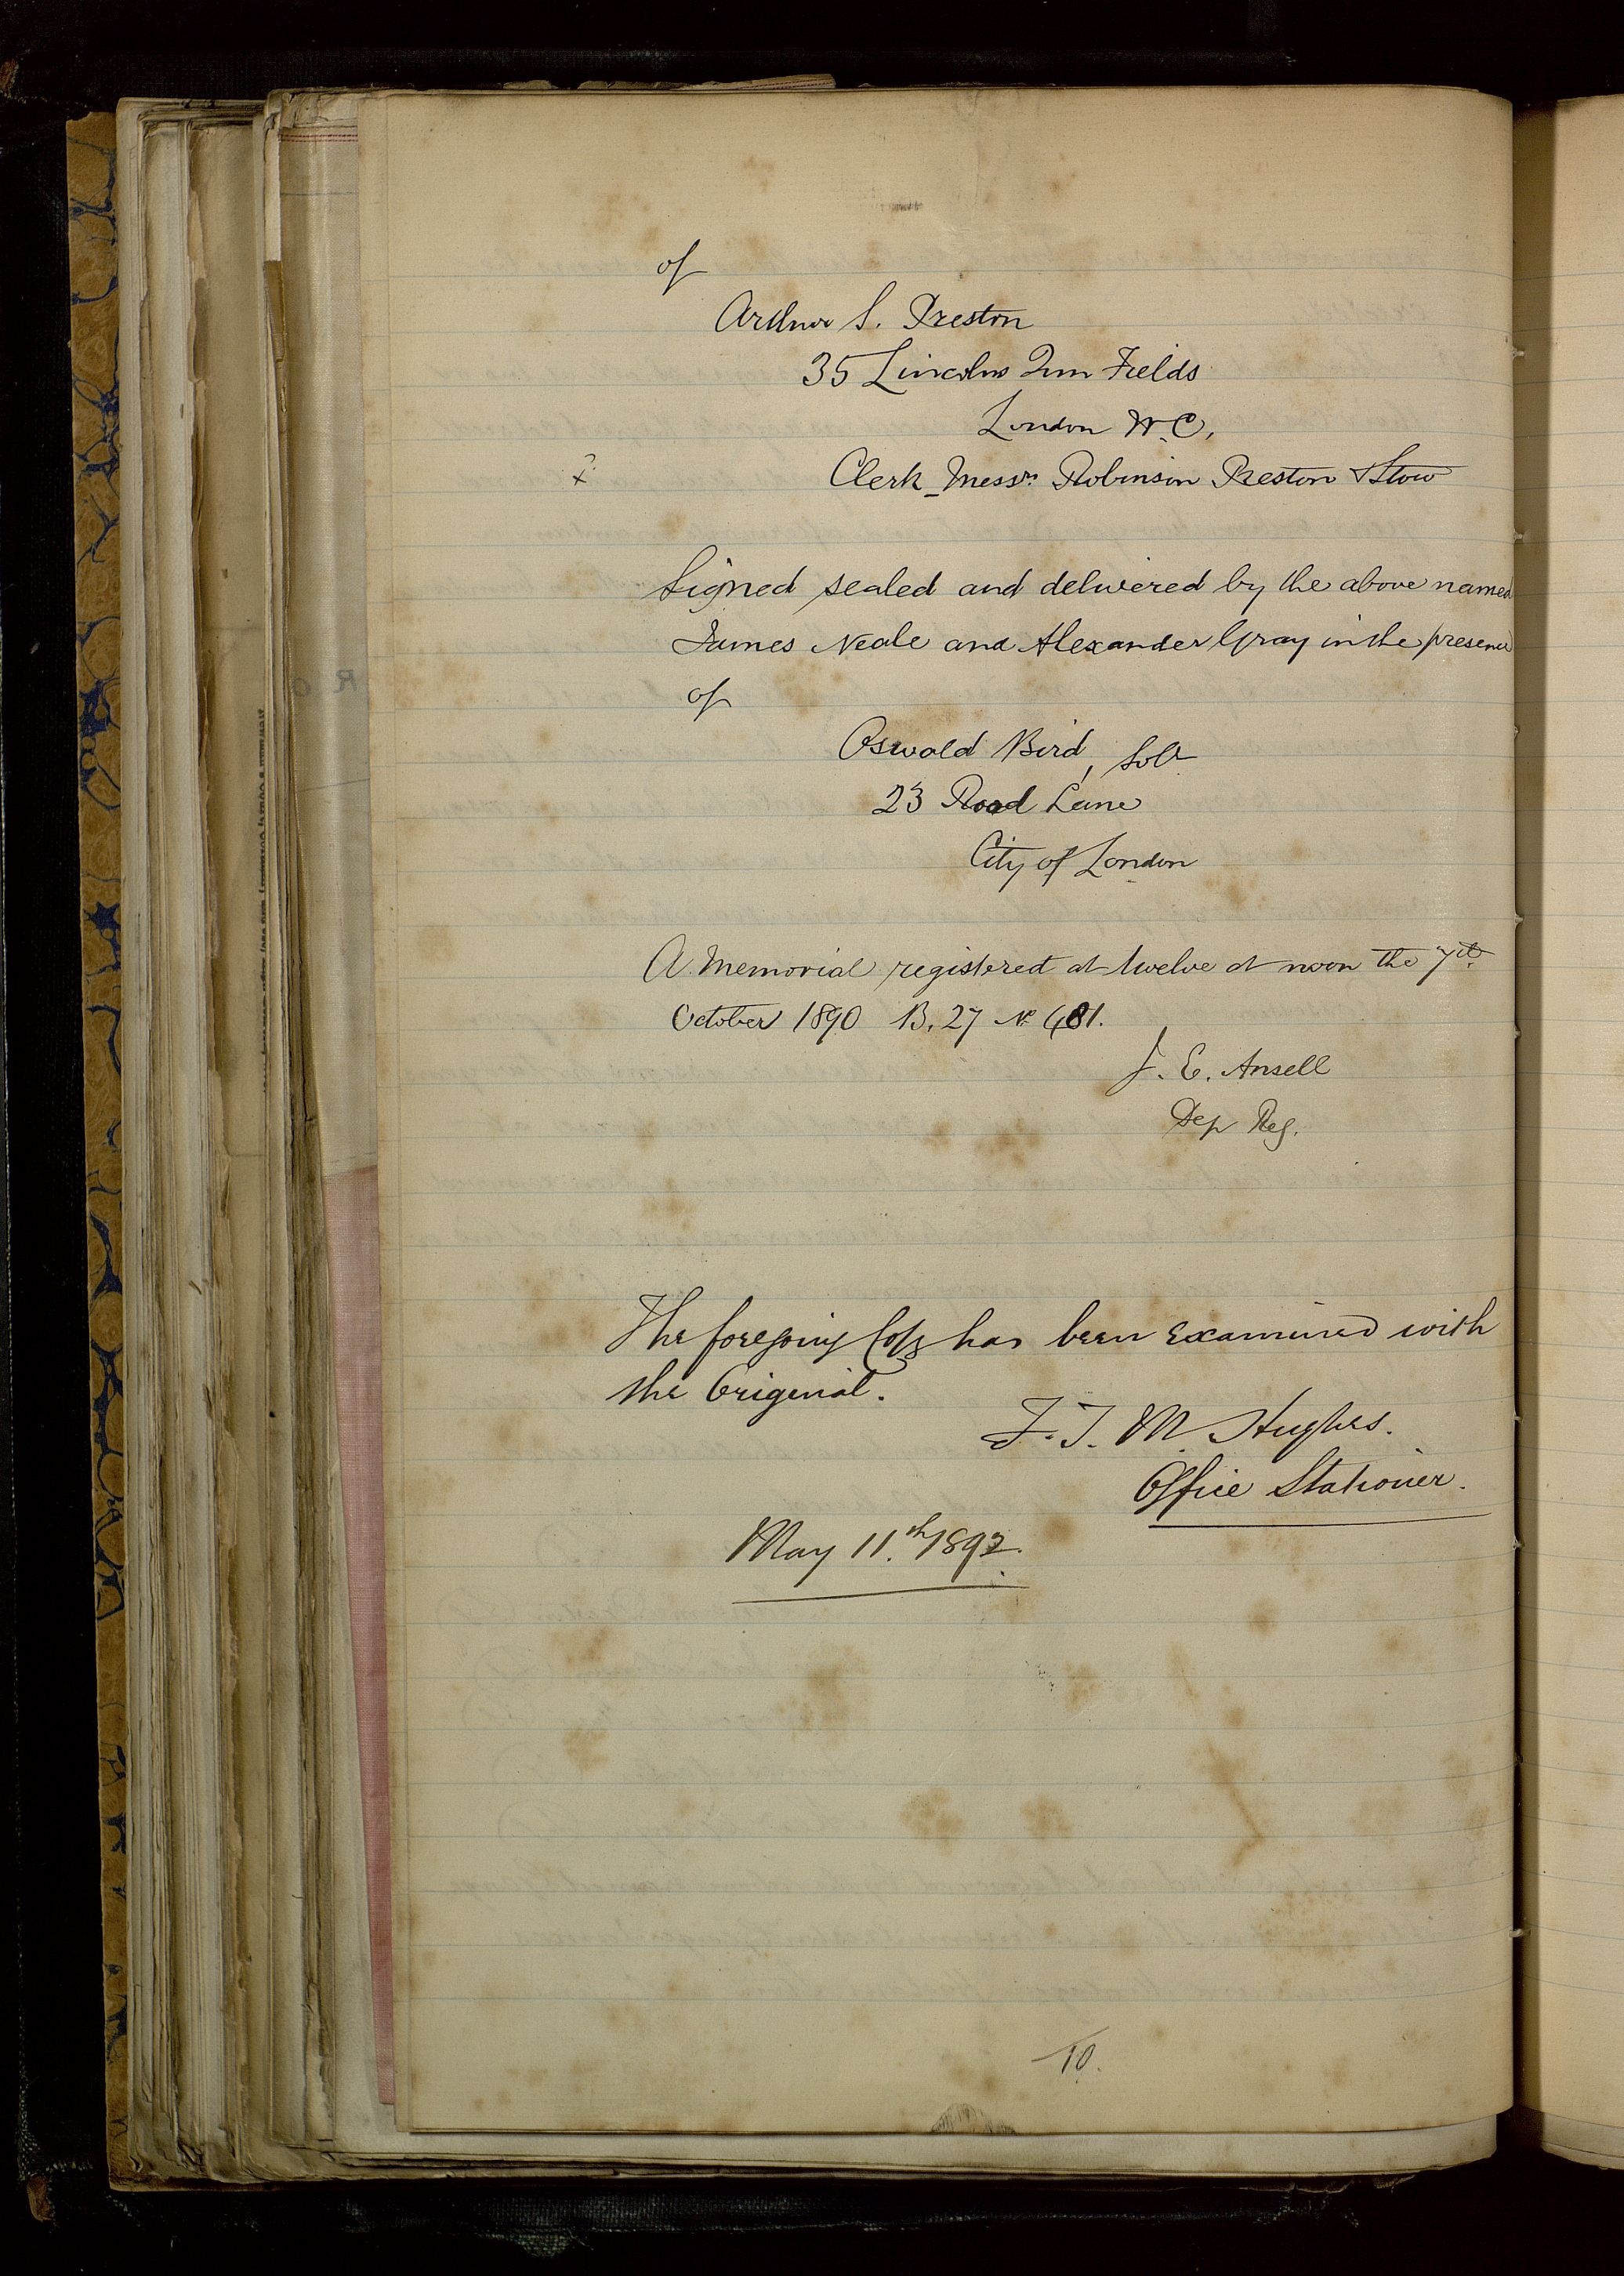 of
Arthur S. Preston
35 Lincolns Inn Fields
London W.C,
? x
Clerk Messrs. Robinson Preston & Stow
Signed sealed and delivered by the above named
James Neale and Alexander Gray in the presence
of
Oswald Bird, Solr
23 Rood Lane
City of London
A Memorial registered at twelve at noon the 7th
October 1890 B. 27 No 681.
J. E. Ansell
Dep Reg.
The foregoing Copy has been examined with
the Original.
F. J. M. Hughes.
Office Stationer.
May 11.th 1892.
10.